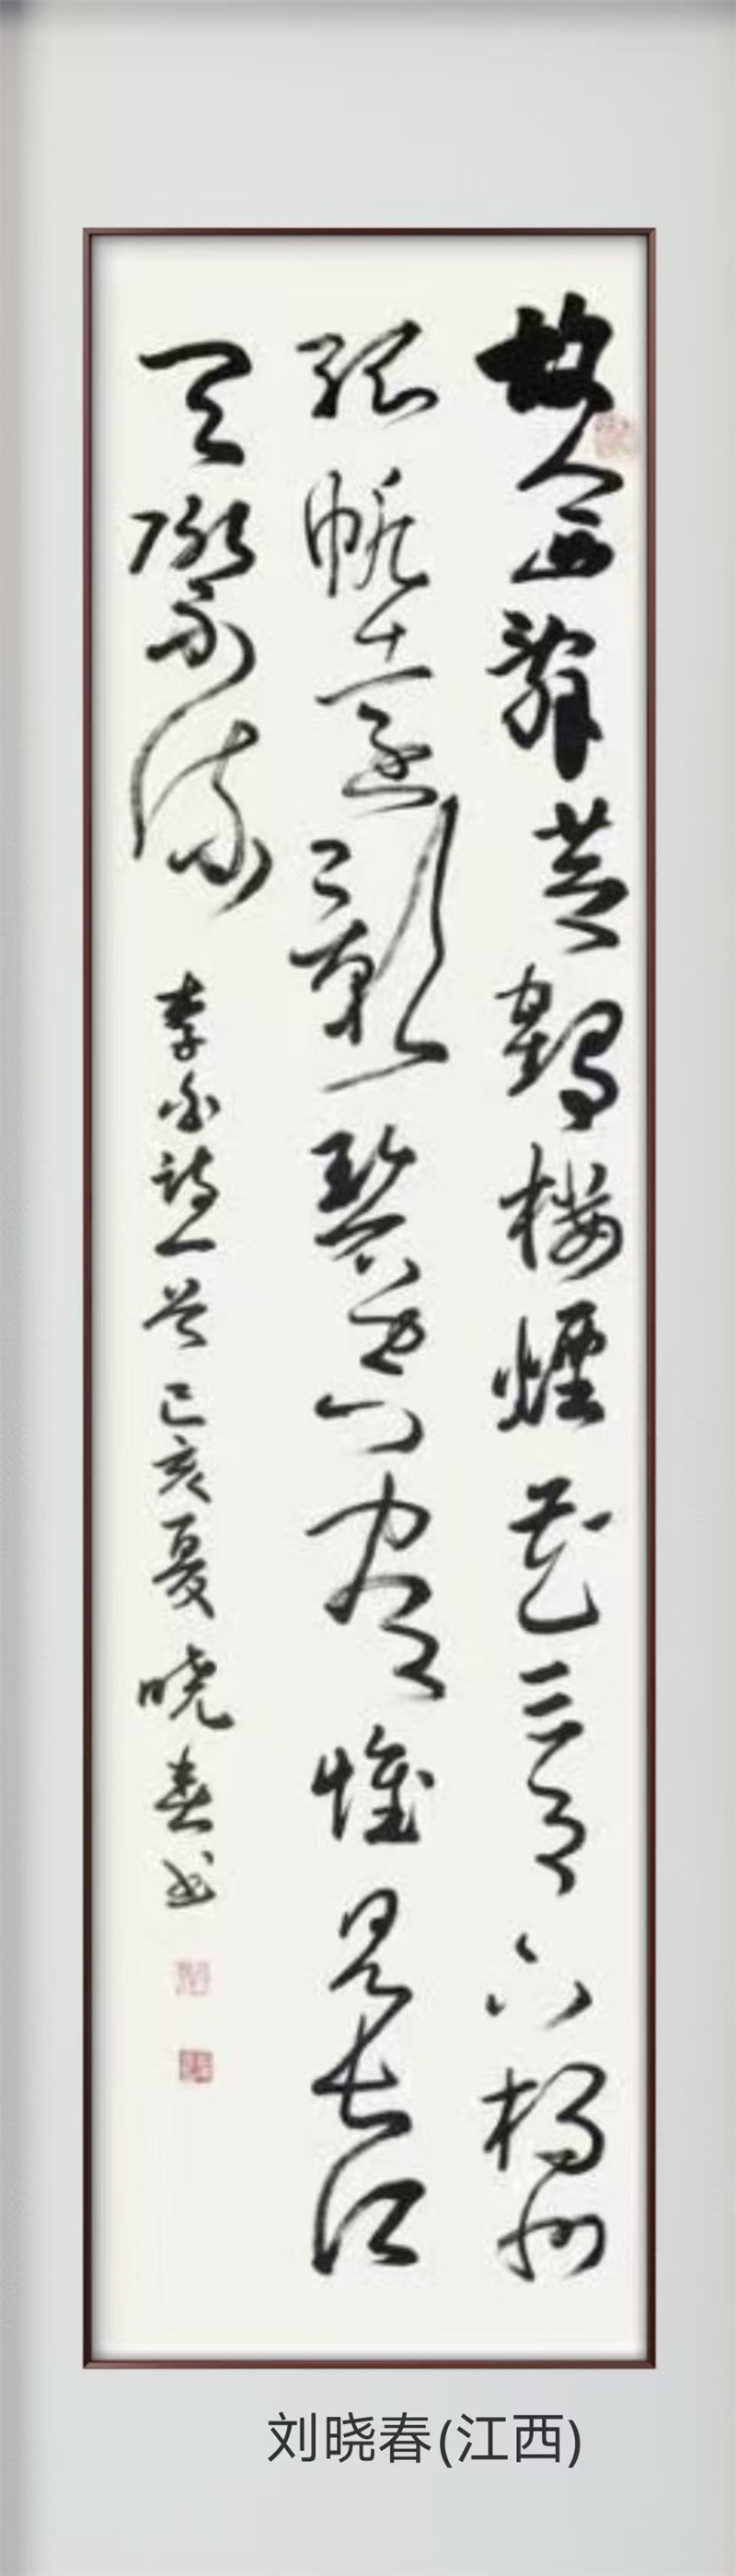 故人西辞黄鹤楼烟花三月下扬州
孤帆远影碧空尽惟见长江
天际流
李白诗一首己亥夏晓春书
刘晓春(江西)